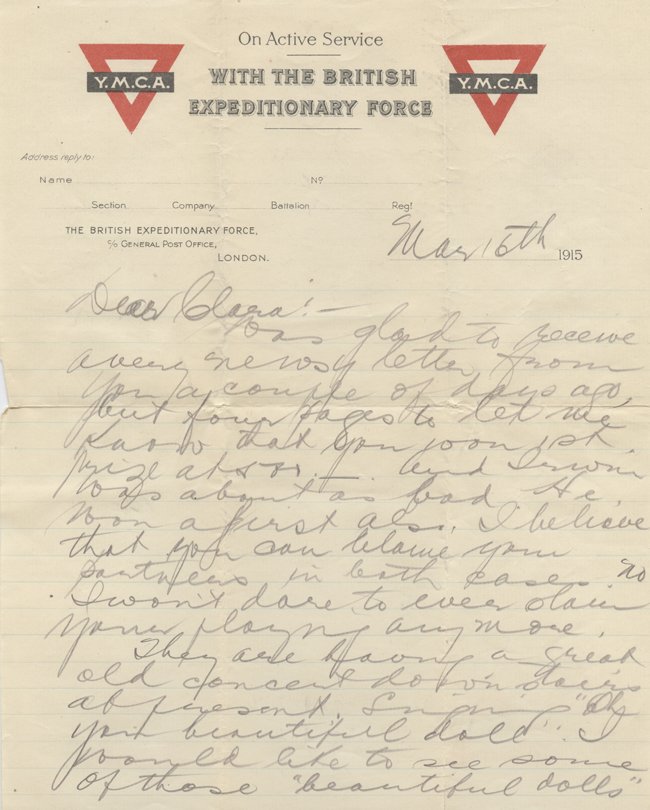 On Active Service
WITH THE BRITISH
EXPEDITIONARY FORCE
Y.M.C.A.
Y.M.C.A.
Address reply to:
Name No
Section Company Battalion Regt
THE BRITISH EXPEDITIONARY FORCE,
c/o GENERAL POST OFFICE,
LONDON.
Mar 15th 1915
Dear Clara! —
Was glad to receive
a very newsy letter from
you a couple of days ago,
but four pages to let me
know that you won 1st
prize at 500. — And Irwin
was about as bad He
won a first also. I believe
that you can blame your
partners in both cases. No
I won't dare to ever slam
your playing anymore.
They are having a great
old concert down stairs
at present. Singing "Oh
you beautiful doll". I
would like to see some
of those "beautiful dolls"